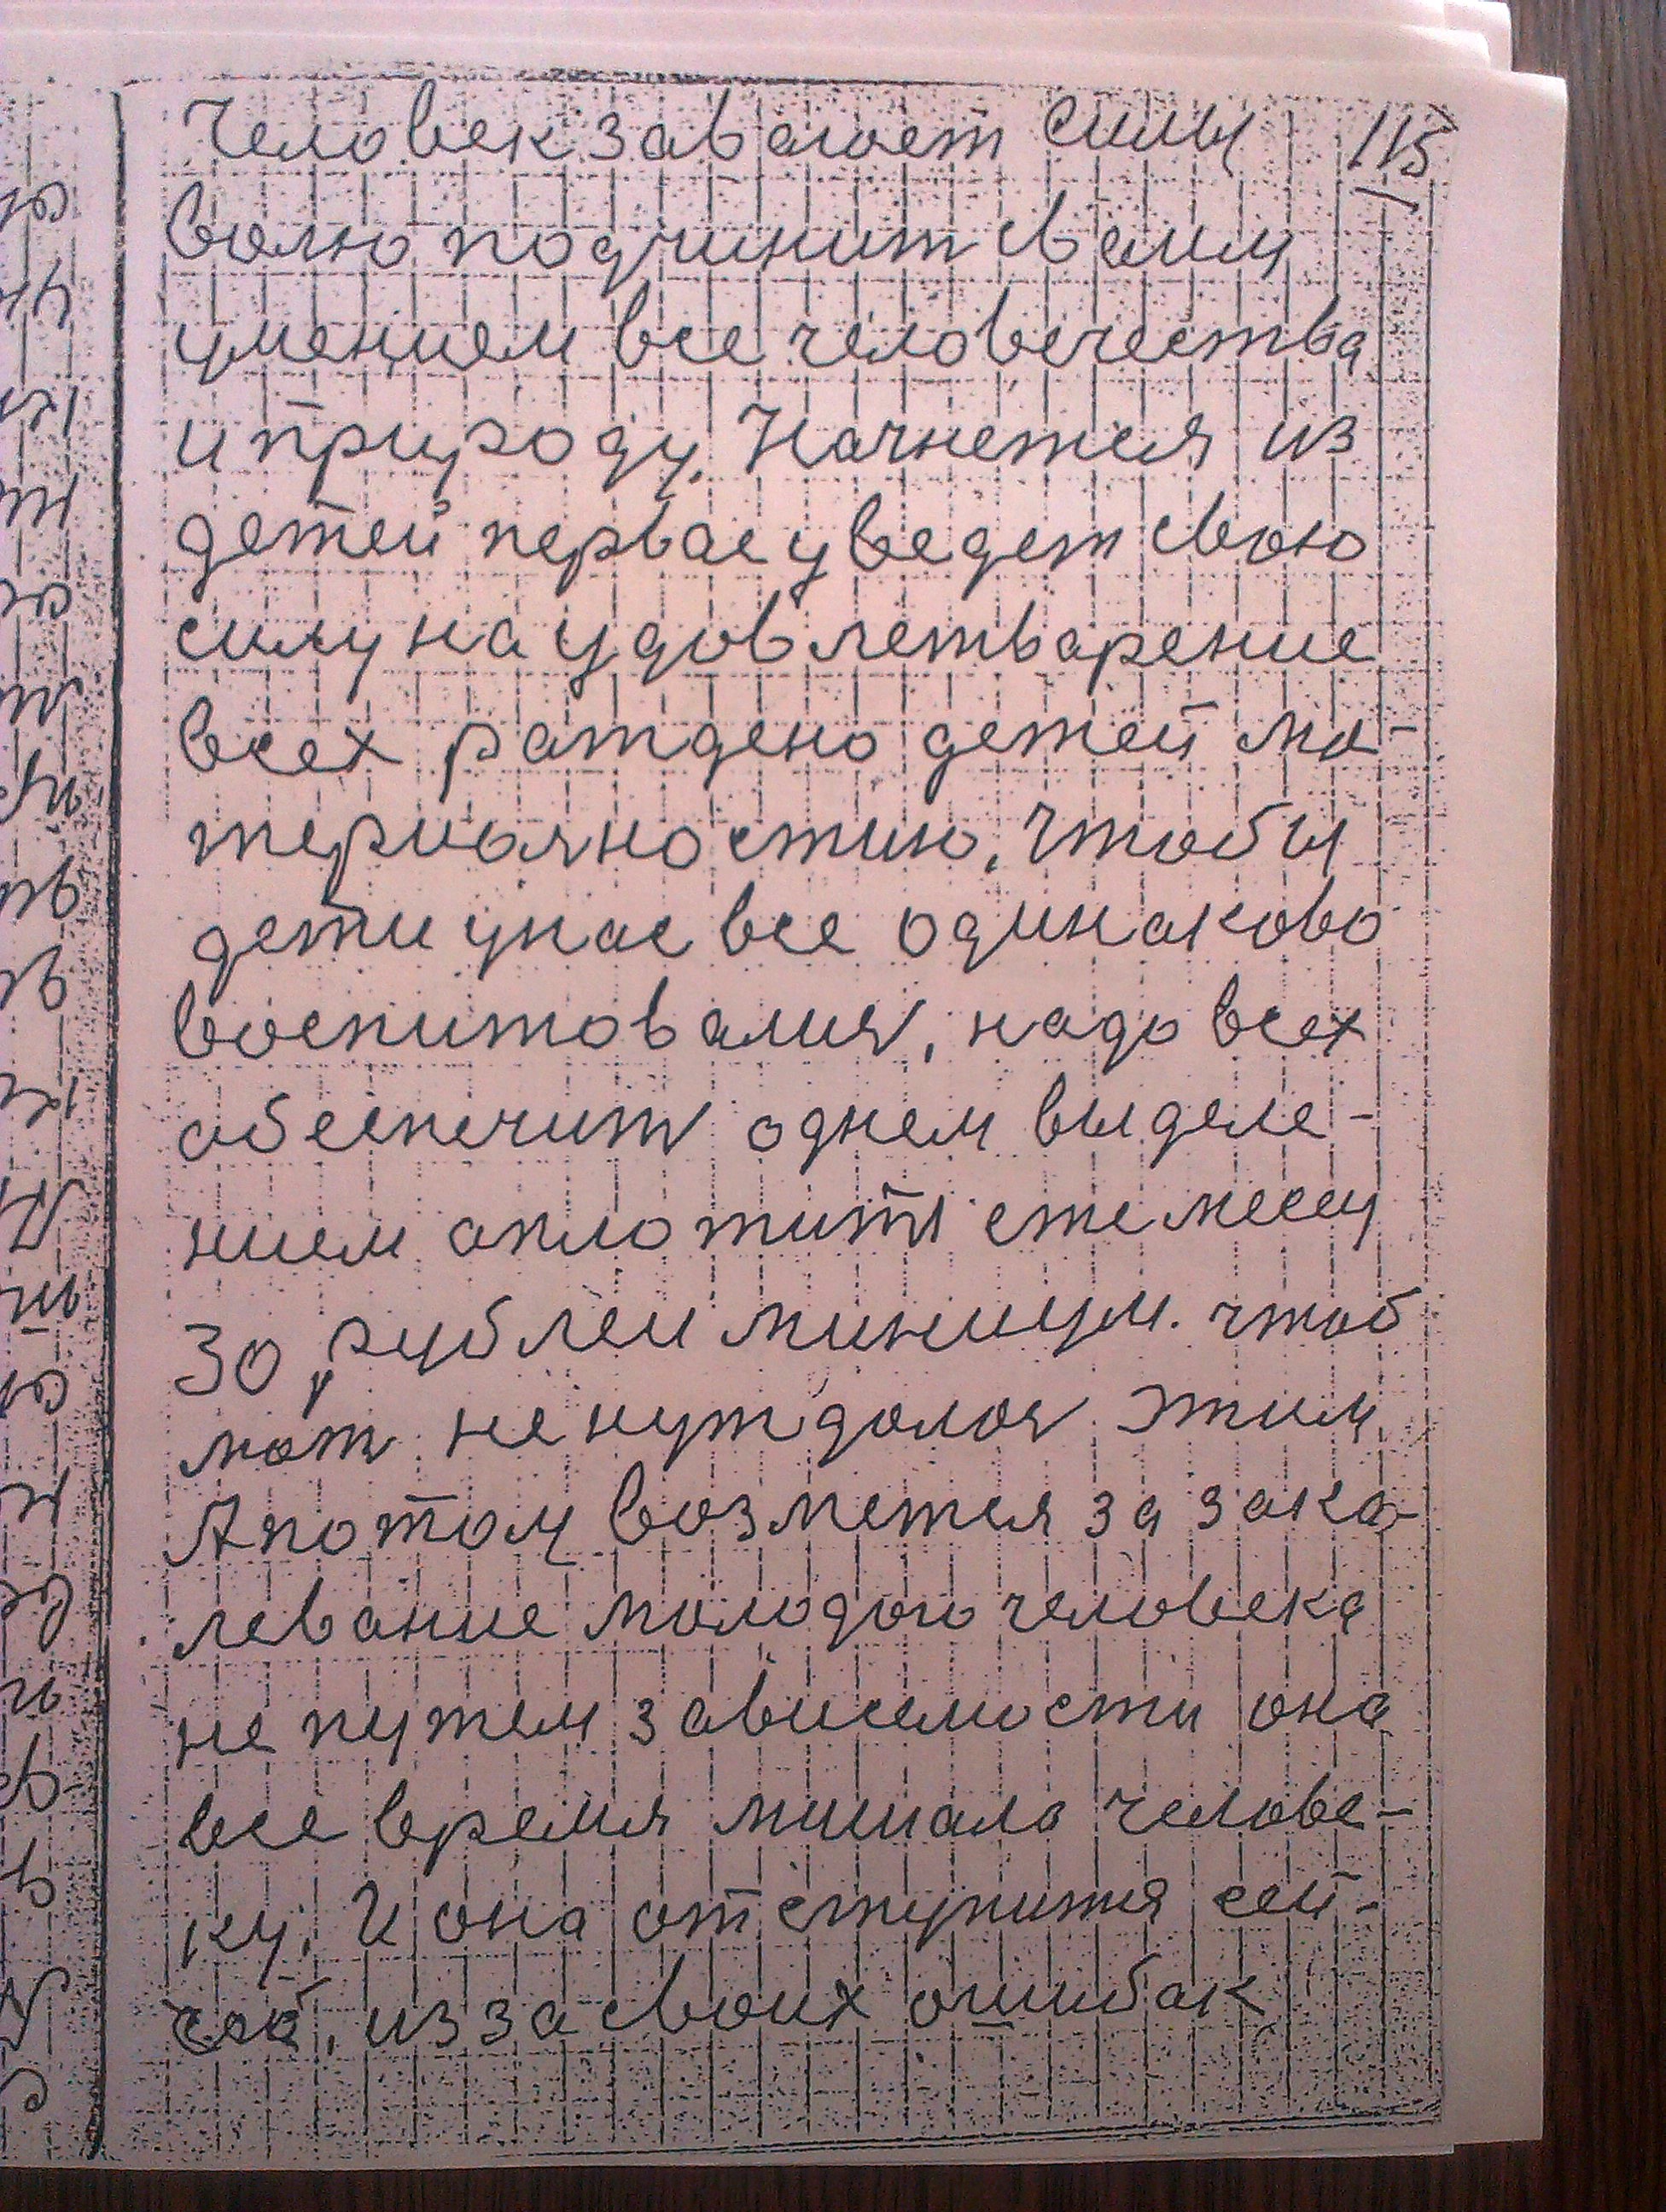 Человек завоюет силы 115
волю подчинит своим
умением все человечества
и природу. Начнется из
детей первое уведет свою
силу на удовлетварение
всех раждено детей ма-
териальностию, чтобы
дети у нас все одинаково
воспитовалися, надо всех
обеспечить однем выделе-
нием оплотить ежемесец
30 рублей минимум. чтоб
мать не нуждолось этим
А потом возметея за зака-
левание молодого человека
не путем зависемости она
все время мишала челове-
ку. И она отступится сей-
час, из за своих ошибак